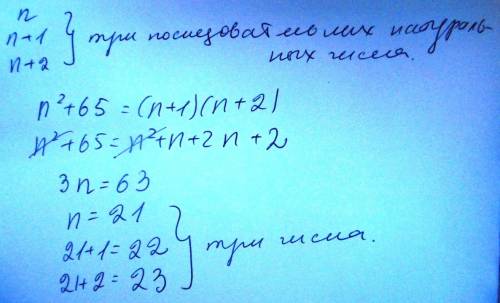 n
n+1
n+2
} три последовательных натураль-
ных числа.
n²+65 = (n+1)(n+2)
n²+65 = n²+n+2n+2
3n = 63
n = 21
21+1 = 22
21+2 = 23
} три числа.